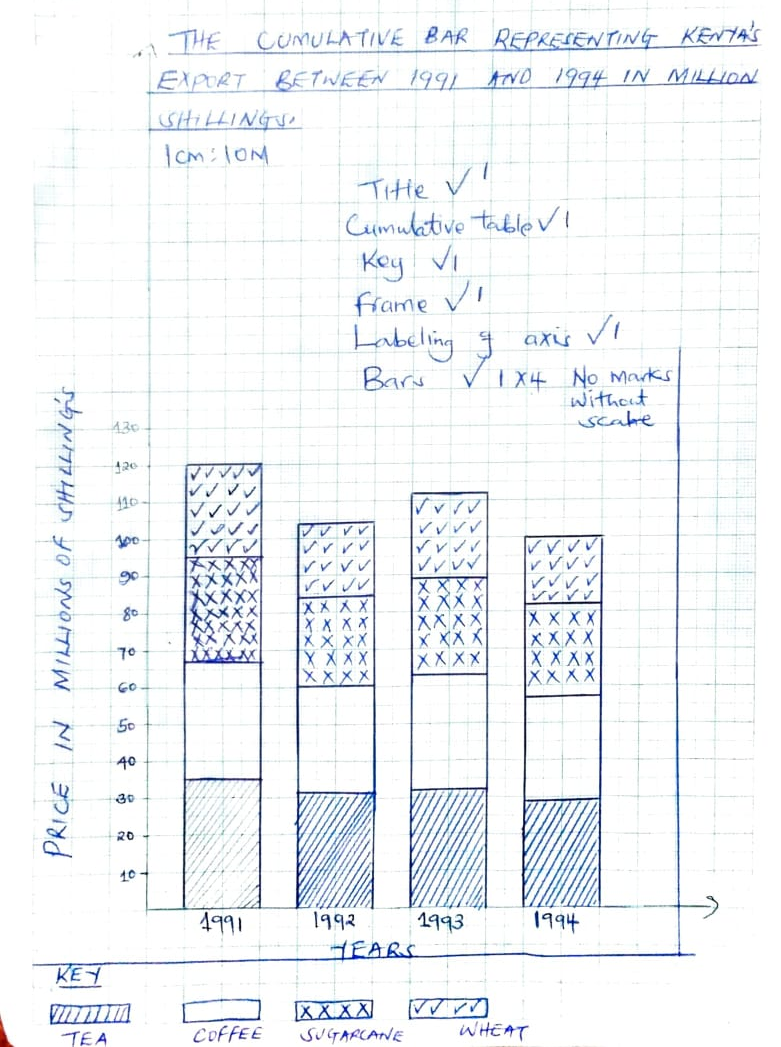 THE CUMULATIVE BAR REPRESENTING KENYA'S
EXPORT BETWEEN 1991 AND 1994 IN MILLION
SHILLINGS.
1cm:10M
Title ✓1
Cumulative table ✓1
Key ✓1
Frame ✓1
Labeling of axis ✓1
Bars ✓1x4 No marks
without
scale
PRICE IN MILLIONS OF SHILLING'S
130
120
110
100
90
80
70
60
50
40
30
20
10
1991 1992 1993 1994
YEARS
KEY
TEA COFFEE SUGARCANE WHEAT